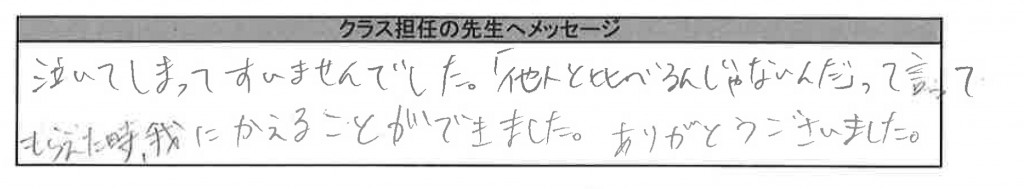 クラス担任の先生へメッセージ
泣いてしまってすいませんでした。「他人と比べるんじゃないんだ」って言って
もらえた時、我にかえることができました。ありがとうございました。